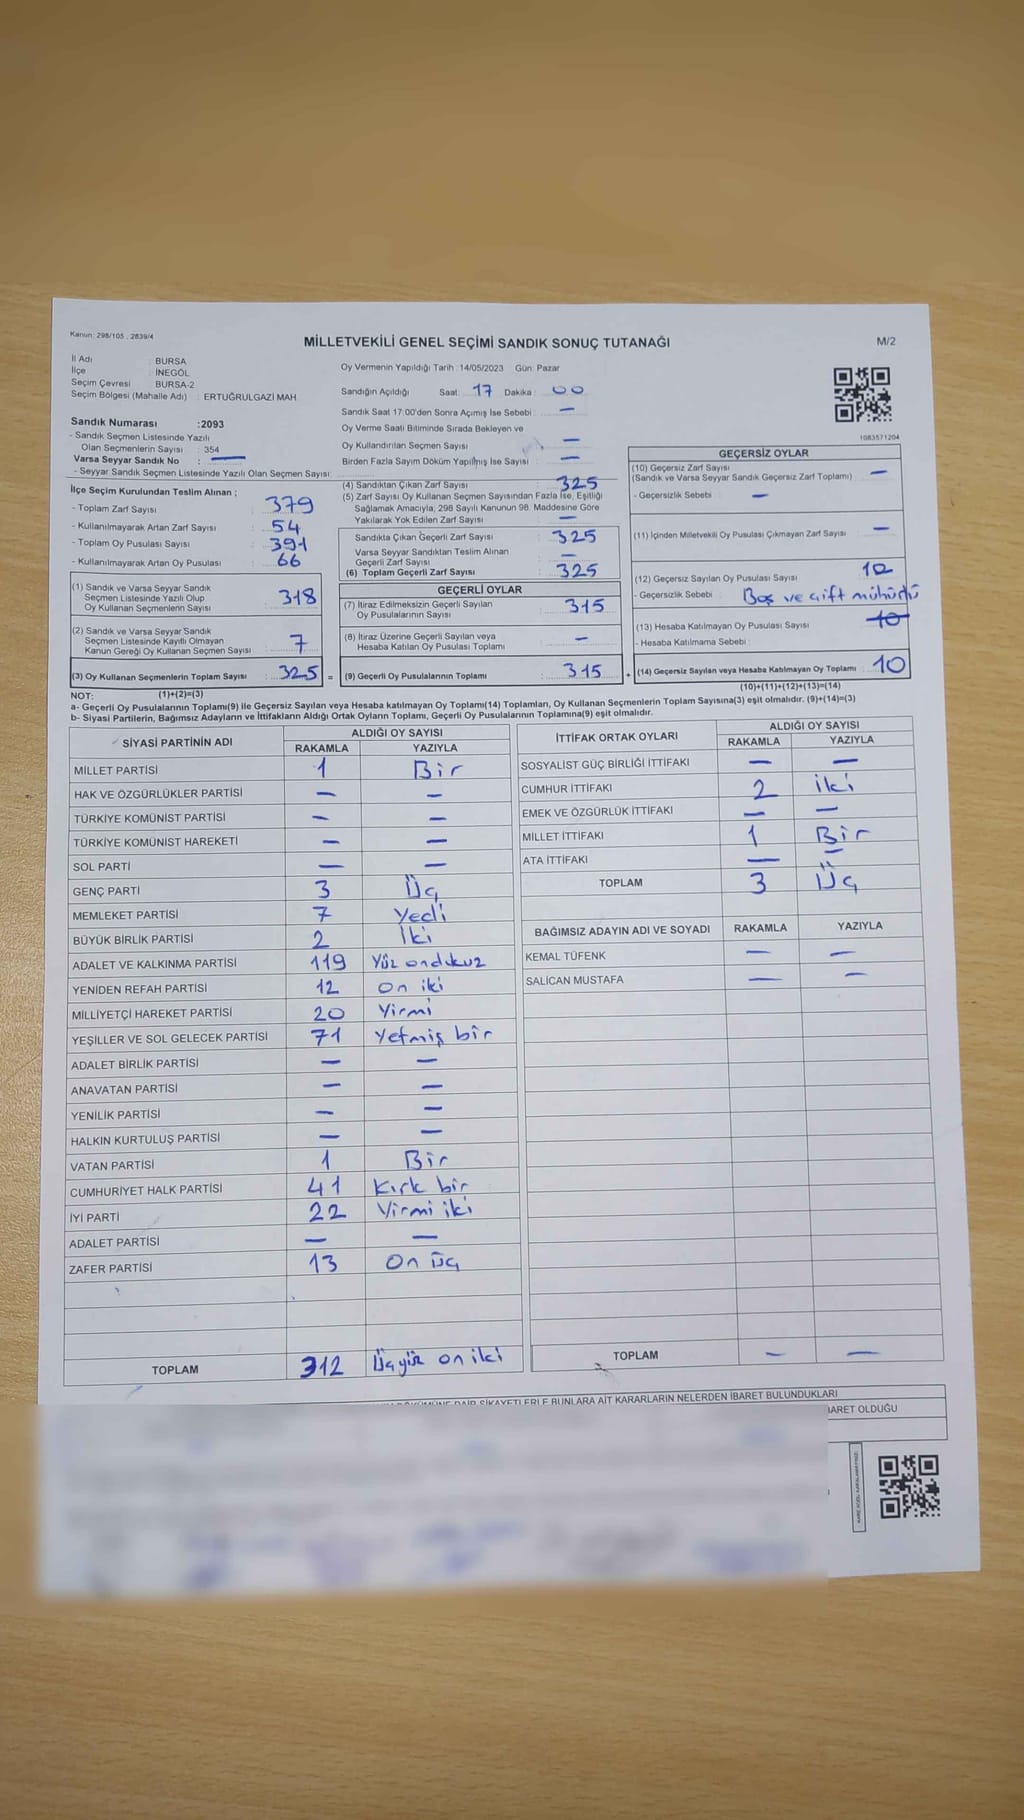 Kanun: 298/105 , 2839/4
MİLLETVEKİLİ GENEL SEÇİMİ SANDIK SONUÇ TUTANAĞI
M/2
İl Adı : BURSA
İlçe : İNEGÖL
Seçim Çevresi BURSA-2
Seçim Bölgesi (Mahalle Adı) : ERTUĞRULGAZİ MAH.
Sandık Numarası :2093
- Sandık Seçmen Listesinde Yazılı
Olan Seçmenlerin Sayısı : 354
Varsa Seyyar Sandık No : —
- Seyyar Sandık Seçmen Listesinde Yazılı Olan Seçmen Sayısı:
İlçe Seçim Kurulundan Teslim Alınan ;
- Toplam Zarf Sayısı : 379
- Kullanılmayarak Artan Zarf Sayısı : 54
- Toplam Oy Pusulası Sayısı : 391
- Kullanılmayarak Artan Oy Pusulası : 66
(1) Sandık ve Varsa Seyyar Sandık
Seçmen Listesinde Yazılı Olup
Oy Kullanan Seçmenlerin Sayısı : 318
(2) Sandık ve Varsa Seyyar Sandık
Seçmen Listesinde Kayıtlı Olmayan
Kanun Gereği Oy Kullanan Seçmen Sayısı : 7
(3) Oy Kullanan Seçmenlerin Toplam Sayısı : 325 =
Oy Vermenin Yapıldığı Tarih : 14/05/2023 Gün: Pazar
Sandığın Açıldığı Saat: 17 Dakika : 00
Sandık Saat 17:00'den Sonra Açımış İse Sebebi : —
Oy Verme Saati Bitiminde Sırada Bekleyen ve
Oy Kullandırılan Seçmen Sayısı : —
Birden Fazla Sayım Döküm Yapılmış İse Sayısı : —
(4) Sandıktan Çıkan Zarf Sayısı : 325
(5) Zarf Sayısı Oy Kullanan Seçmen Sayısından Fazla İse, Eşitliği
Sağlamak Amacıyla, 298 Sayılı Kanunun 98. Maddesine Göre
Yakılarak Yok Edilen Zarf Sayısı : —
Sandıkta Çıkan Geçerli Zarf Sayısı : 325
Varsa Seyyar Sandıktan Teslim Alınan
Geçerli Zarf Sayısı : —
(6) Toplam Geçerli Zarf Sayısı : 325
GEÇERLİ OYLAR
(7) İtiraz Edilmeksizin Geçerli Sayılan
Oy Pusulalarının Sayısı : 315
(8) İtiraz Üzerine Geçerli Sayılan veya
Hesaba Katılan Oy Pusulası Toplamı : —
(9) Geçerli Oy Pusulalarının Toplamı : 315 +
1083571204
GEÇERSİZ OYLAR
(10) Geçersiz Zarf Sayısı
(Sandık ve Varsa Seyyar Sandık Geçersiz Zarf Toplamı) : —
- Geçersizlik Sebebi : —
(11) İçinden Milletvekili Oy Pusulası Çıkmayan Zarf Sayısı : —
(12) Geçersiz Sayılan Oy Pusulası Sayısı : 10
- Geçersizlik Sebebi : Boş ve çift mühürlü
(13) Hesaba Katılmayan Oy Pusulası Sayısı : 10
- Hesaba Katılmama Sebebi :
(14) Geçersiz Sayılan veya Hesaba Katılmayan Oy Toplamı : 10
NOT: (1)+(2)=(3)
(10)+(11)+(12)+(13)=(14)
a- Geçerli Oy Pusulalarının Toplamı(9) ile Geçersiz Sayılan veya Hesaba katılmayan Oy Toplamı(14) Toplamları, Oy Kullanan Seçmenlerin Toplam Sayısına(3) eşit olmalıdır. (9)+(14)=(3)
b- Siyasi Partilerin, Bağımsız Adayların ve İttifakların Aldığı Ortak Oyların Toplamı, Geçerli Oy Pusulalarının Toplamına(9) eşit olmalıdır.
SİYASİ PARTİNİN ADI ALDIĞI OY SAYISI
RAKAMLA YAZIYLA
MİLLET PARTİSİ 1 Bir
HAK VE ÖZGÜRLÜKLER PARTİSİ — —
TÜRKİYE KOMÜNİST PARTİSİ — —
TÜRKİYE KOMÜNİST HAREKETİ — —
SOL PARTİ — —
GENÇ PARTİ 3 Üç
MEMLEKET PARTİSİ 7 Yedi
BÜYÜK BİRLİK PARTİSİ 2 İki
ADALET VE KALKINMA PARTİSİ 119 Yüz ondokuz
YENİDEN REFAH PARTİSİ 12 On iki
MİLLİYETÇİ HAREKET PARTİSİ 20 Yirmi
YEŞİLLER VE SOL GELECEK PARTİSİ 71 Yetmiş bir
ADALET BİRLİK PARTİSİ — —
ANAVATAN PARTİSİ — —
YENİLİK PARTİSİ — —
HALKIN KURTULUŞ PARTİSİ — —
VATAN PARTİSİ 1 Bir
CUMHURİYET HALK PARTİSİ 41 Kırk bir
İYİ PARTİ 22 Yirmi iki
ADALET PARTİSİ — —
ZAFER PARTİSİ 13 On üç
TOPLAM 312 Üçyüz on iki
İTTİFAK ORTAK OYLARI ALDIĞI OY SAYISI
RAKAMLA YAZIYLA
SOSYALİST GÜÇ BİRLİĞİ İTTİFAKI — —
CUMHUR İTTİFAKI 2 iki
EMEK VE ÖZGÜRLÜK İTTİFAKI — —
MİLLET İTTİFAKI 1 Bir
ATA İTTİFAKI — —
TOPLAM 3 Üç
BAĞIMSIZ ADAYIN ADI VE SOYADI RAKAMLA YAZIYLA
KEMAL TÜFENK — —
SALİCAN MUSTAFA — —
TOPLAM — —
ŞİKAYETLERLE BUNLARA AİT KARARLARIN NELERDEN İBARET BULUNDUKLARI
İBARET OLDUĞU